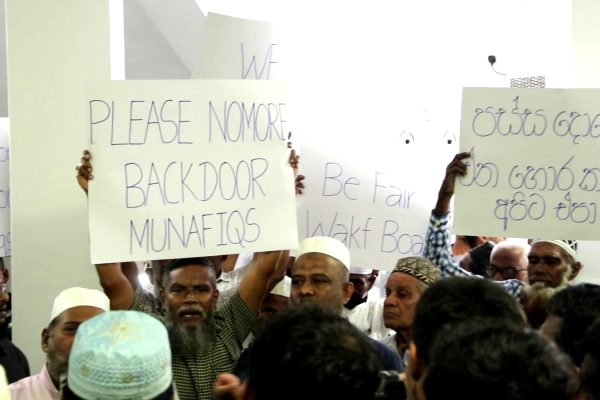 WE
PLEASE NOMORE
BACKDOOR
MUNAFIQS
Be Fair
Wakf
පස්ස
හොර
අපිට එපා